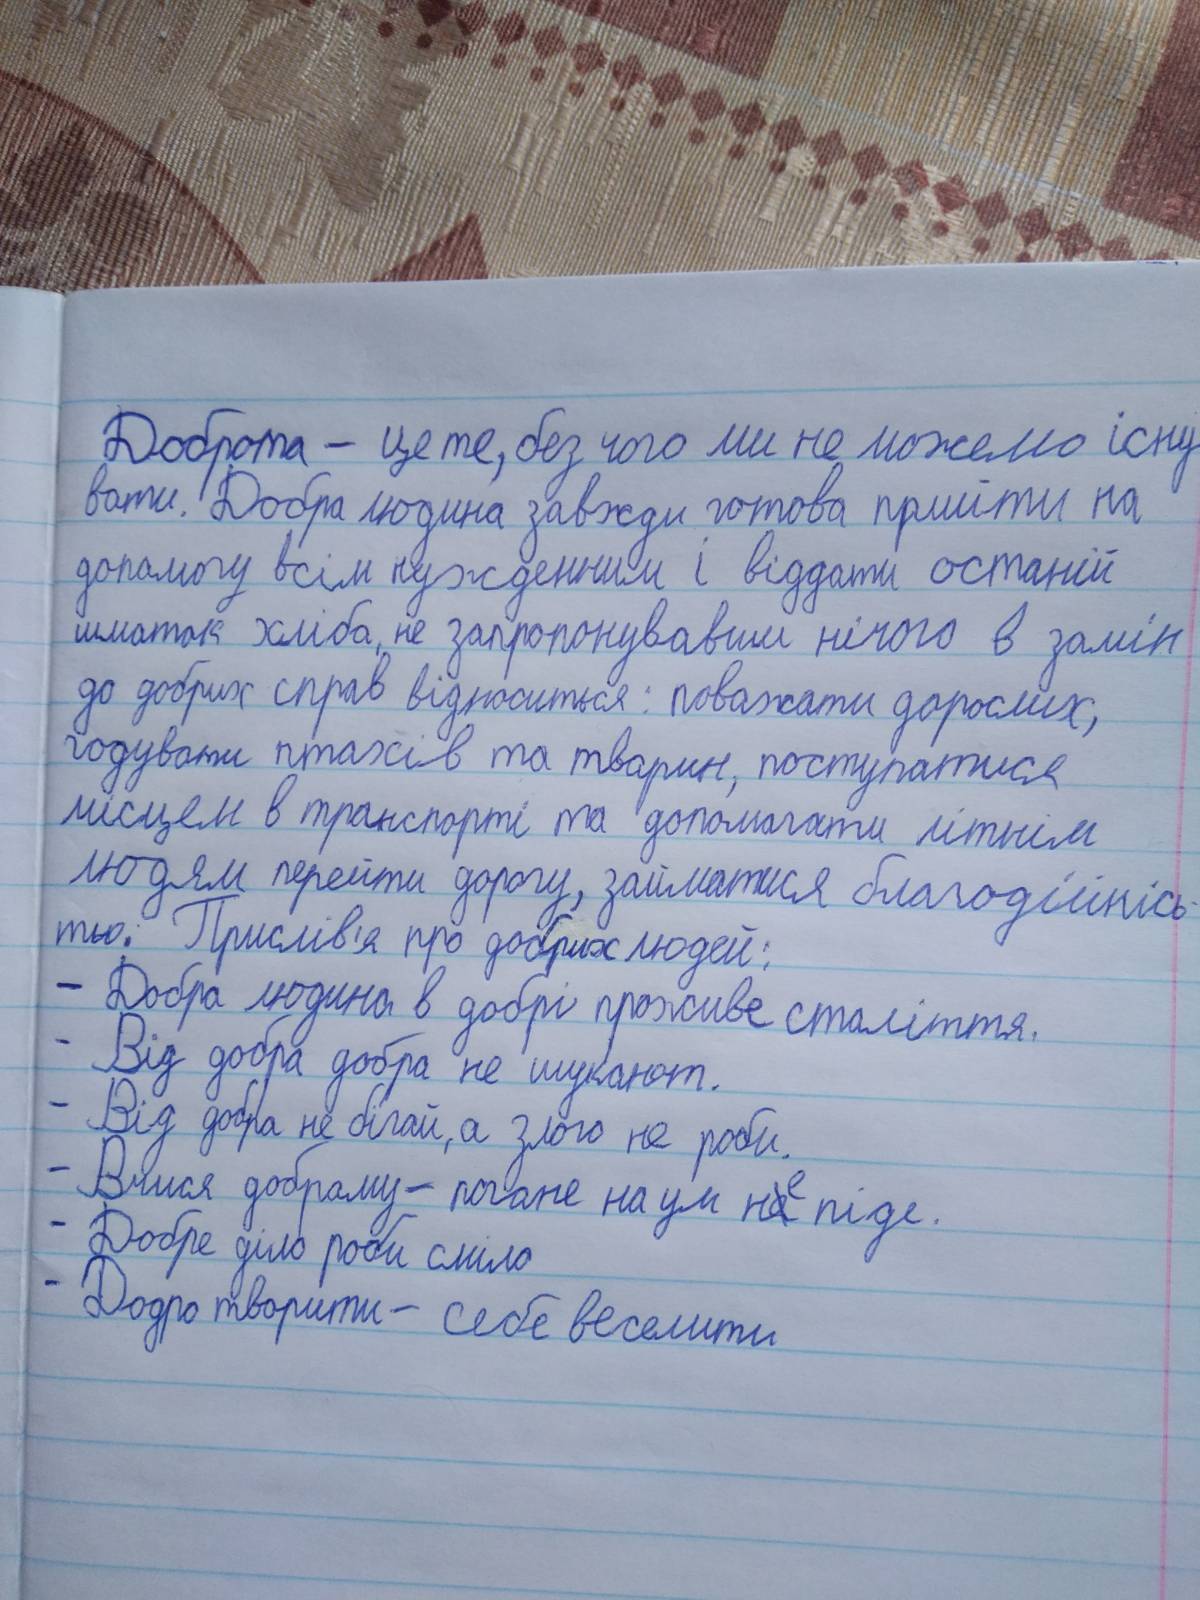 Доброта – це те, без чого ми не можемо існу
вати. Добра людина завжди готова прийти на
допомогу всім нужденним і віддати останій
шматок хліба, не запропонувавши нічого в замін
до добрих справ відноситься: поважати дорослих,
годувати птахів та тварин, поступатися
місцем в транспорті та допомагати літнім
людям перейти дорогу, займатися благодійнісь-
тью. Прислів'я про добрих людей:
– Добра людина в добрі проживе сталіття.
- Від добра добра не шукают.
- Від добра не бігай, а злого не роби.
- Вчися доброму – погане на ум не піде.
- Добре діло роби сміло
- Додро творити – себе веселити